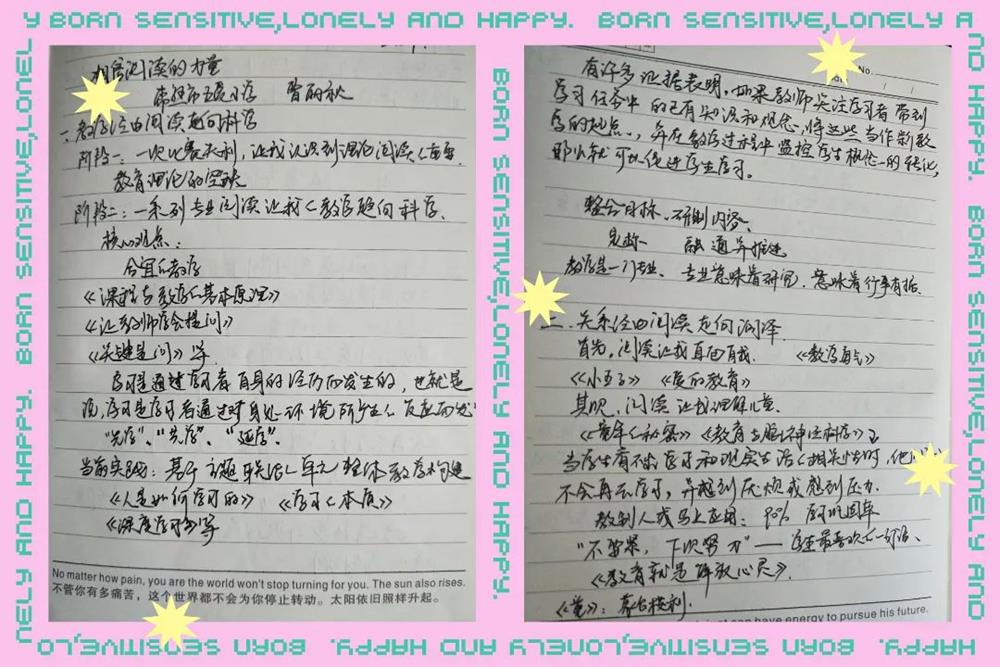 Y BORN SENSITIVE,LONELY AND HAPPY. BORN SENSITIVE,LONELY A
ND HAPPY. BORN SENSITIVE,LONELY AND
HAPPY. BORN SENSITIVE,LONELY AND HAPPY. BORN SENSITIVE,LO
NELY AND HAPPY. BORN SENSITIVE,LONEL
相信阅读的力量
曾丽秋
一、教学经由阅读走向科学
阶段一：一次比赛失利，让我认识到理论阅读的重要
教育理论的坚队
阶段二：一系列专业阅读让我的教学趋向科学.
核心观点：
合宜的教学
《课程与教学的基本原理》
《让教师学会提问》
《关键是问》等
学习是通过学习者自身的经历而发生的，也就是
说，学习是学习者通过对身处环境所产生的反应而发
"先学"、"共学"、"延学".
当前实践：基于主题联结的单元整体教学构建
《人是如何学习的》 《学习的本质》
《深度学习》等
No matter how pain, you are the world won't stop turning for you. The sun also rises.
不管你有多痛苦，这个世界都不会为你停止转动。太阳依旧照样升起。
BORN SENSITIVE,LONELY AND HAPPY.
No.
有许多证据表明，如果教师关注学习者带到
学习任务中的已有知识和观念，将这些当作新教
学的起点，并在教学过程中监控学生概念的转化，
那么就可以促进学生学习。
整合目标、不限制内容、
融通并推进
教学是一门专业、专业意味着研究，意味着行事有据.
二、关系经由阅读走向润泽
首先，阅读让我自由有我. 《教学勇气》
《小王子》 《爱的教育》
其次，阅读让我理解儿童.
《童年的秘密》《教育与脑神经科学》
当学生看不出学习和现实生活的相关性时，他
不会再去学习，并感到厌烦或感到压力.
教别人或马上应用：90% 学习巩固率
"不要紧，下次努力"——学生最喜欢的一句话、
《教育就是解放心灵》.
just can have energy to pursue his future.